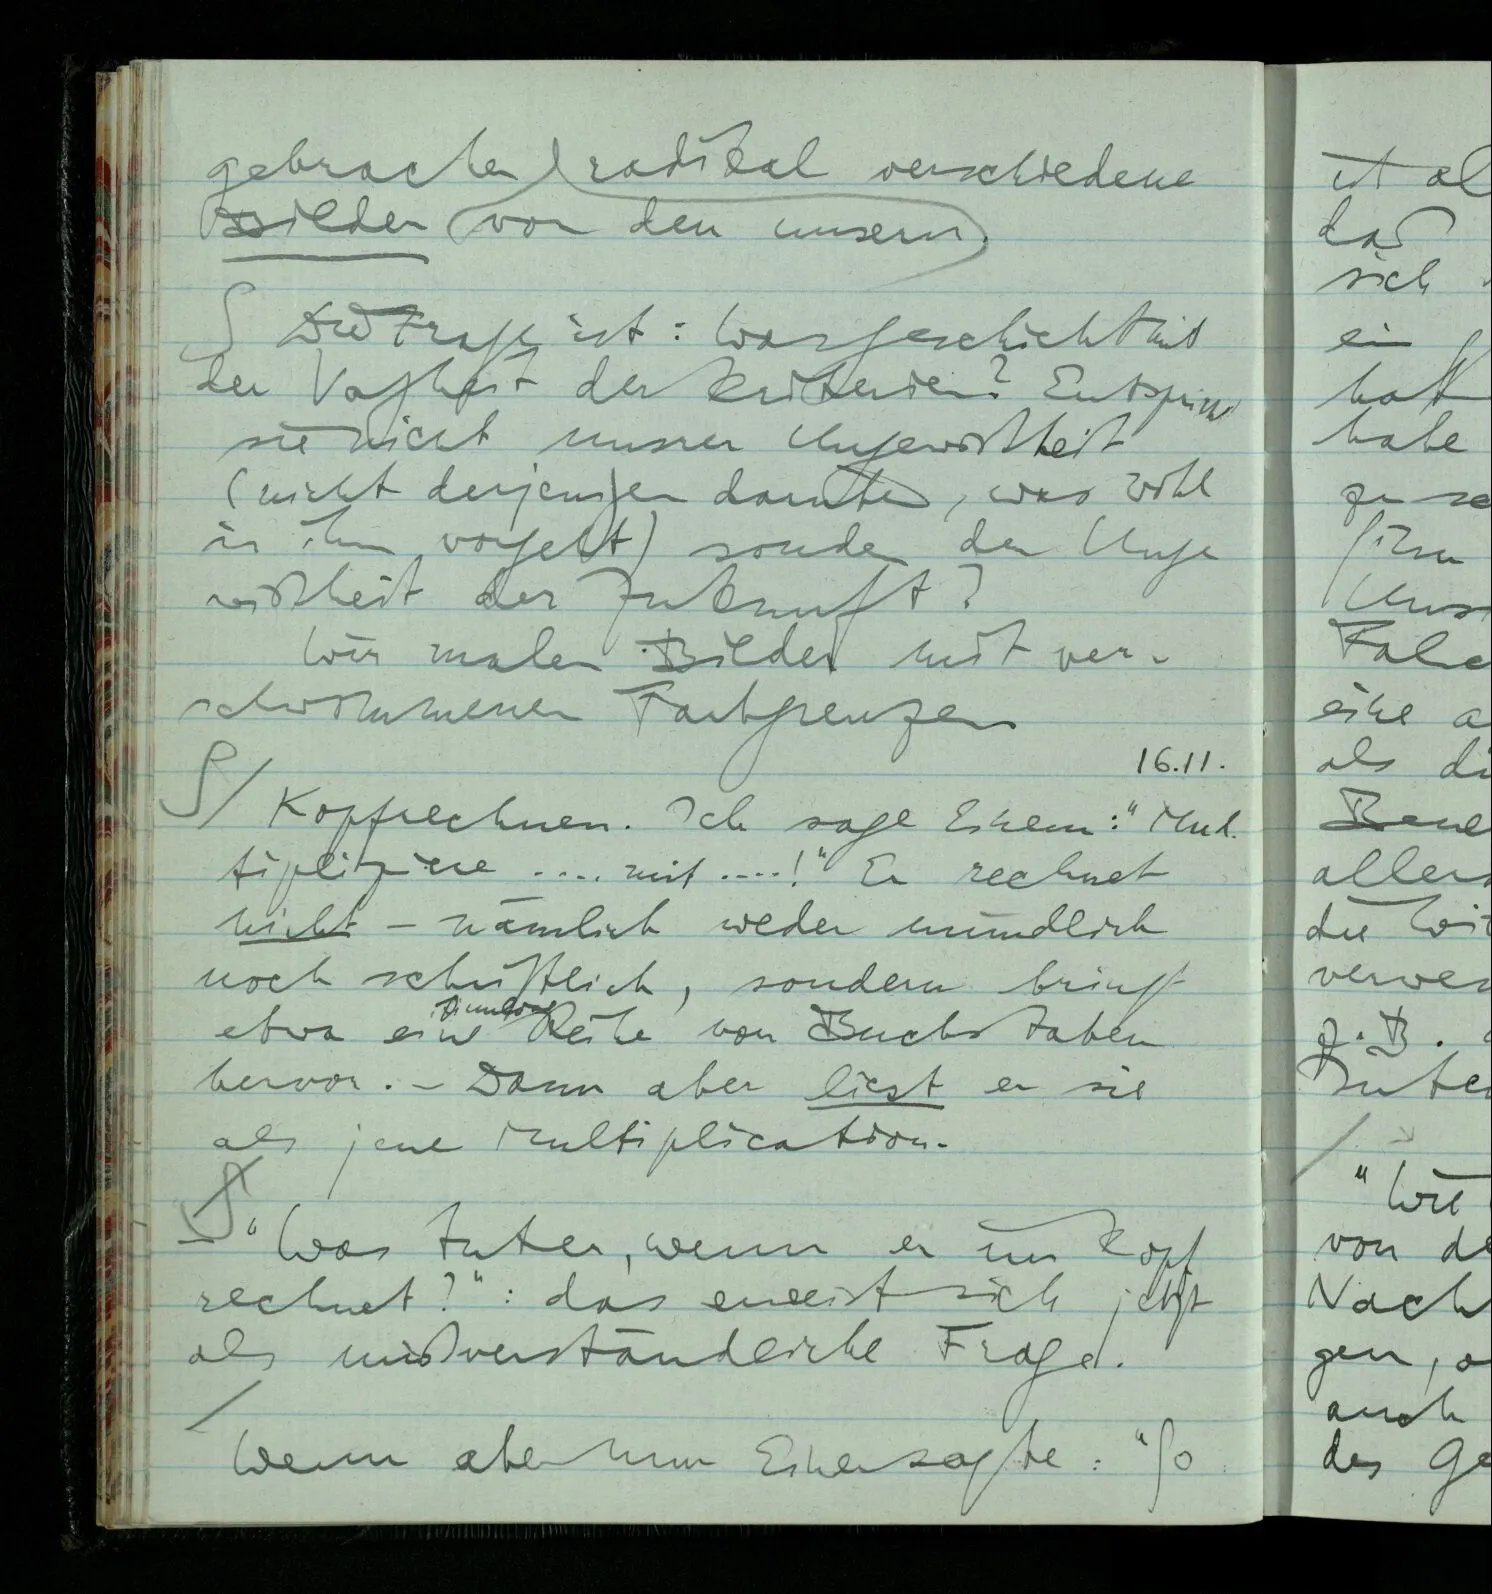 gebrachten radikal verschiedene
Bilder von den unsern.
∫ Die Frage ist: Was geschieht mit
der Vagheit der Kriterien? Entspricht
sie nicht unsrer Ungewißheit
(nicht derjenigen darüber, was wohl
in ihm vorgeht) sondern der Unge
wißheit der Zukunft?
Wir malen Bilder mit ver-
schwommenen Farbgrenzen
16.11.
∫ / Kopfrechnen. Ich sage Einem: "Mul-
tipliziere .... mit ....!" Er rechnet
nicht – nämlich weder mündlich
noch schriftlich, sondern bringt
sinnlose
etwa eine Reihe von Buchstaben
hervor. – Dann aber liest er sie
als jene Multiplication.
∫ "Was tut er, wenn er im Kopf
rechnet?": das erweist sich jetzt
als mißverständliche Frage.
/
Wenn aber nun Einer sagte: "So
ist al
das
sich
ein
hat
habe
zu se
Unse
eine a
als di
allerd
die
verwe
z.B.
/
"Wie
von de
Nach
gen, o
auch
des Ge